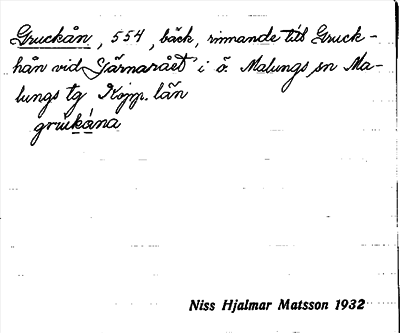 Gruckån, 554, bäck, rinnande till Gruck-
hån vid Järnarået i ö. Malungs sn Ma-
lungs tg Kopp. län
gruk̲á̲na
Niss Hjalmar Matsson 1932